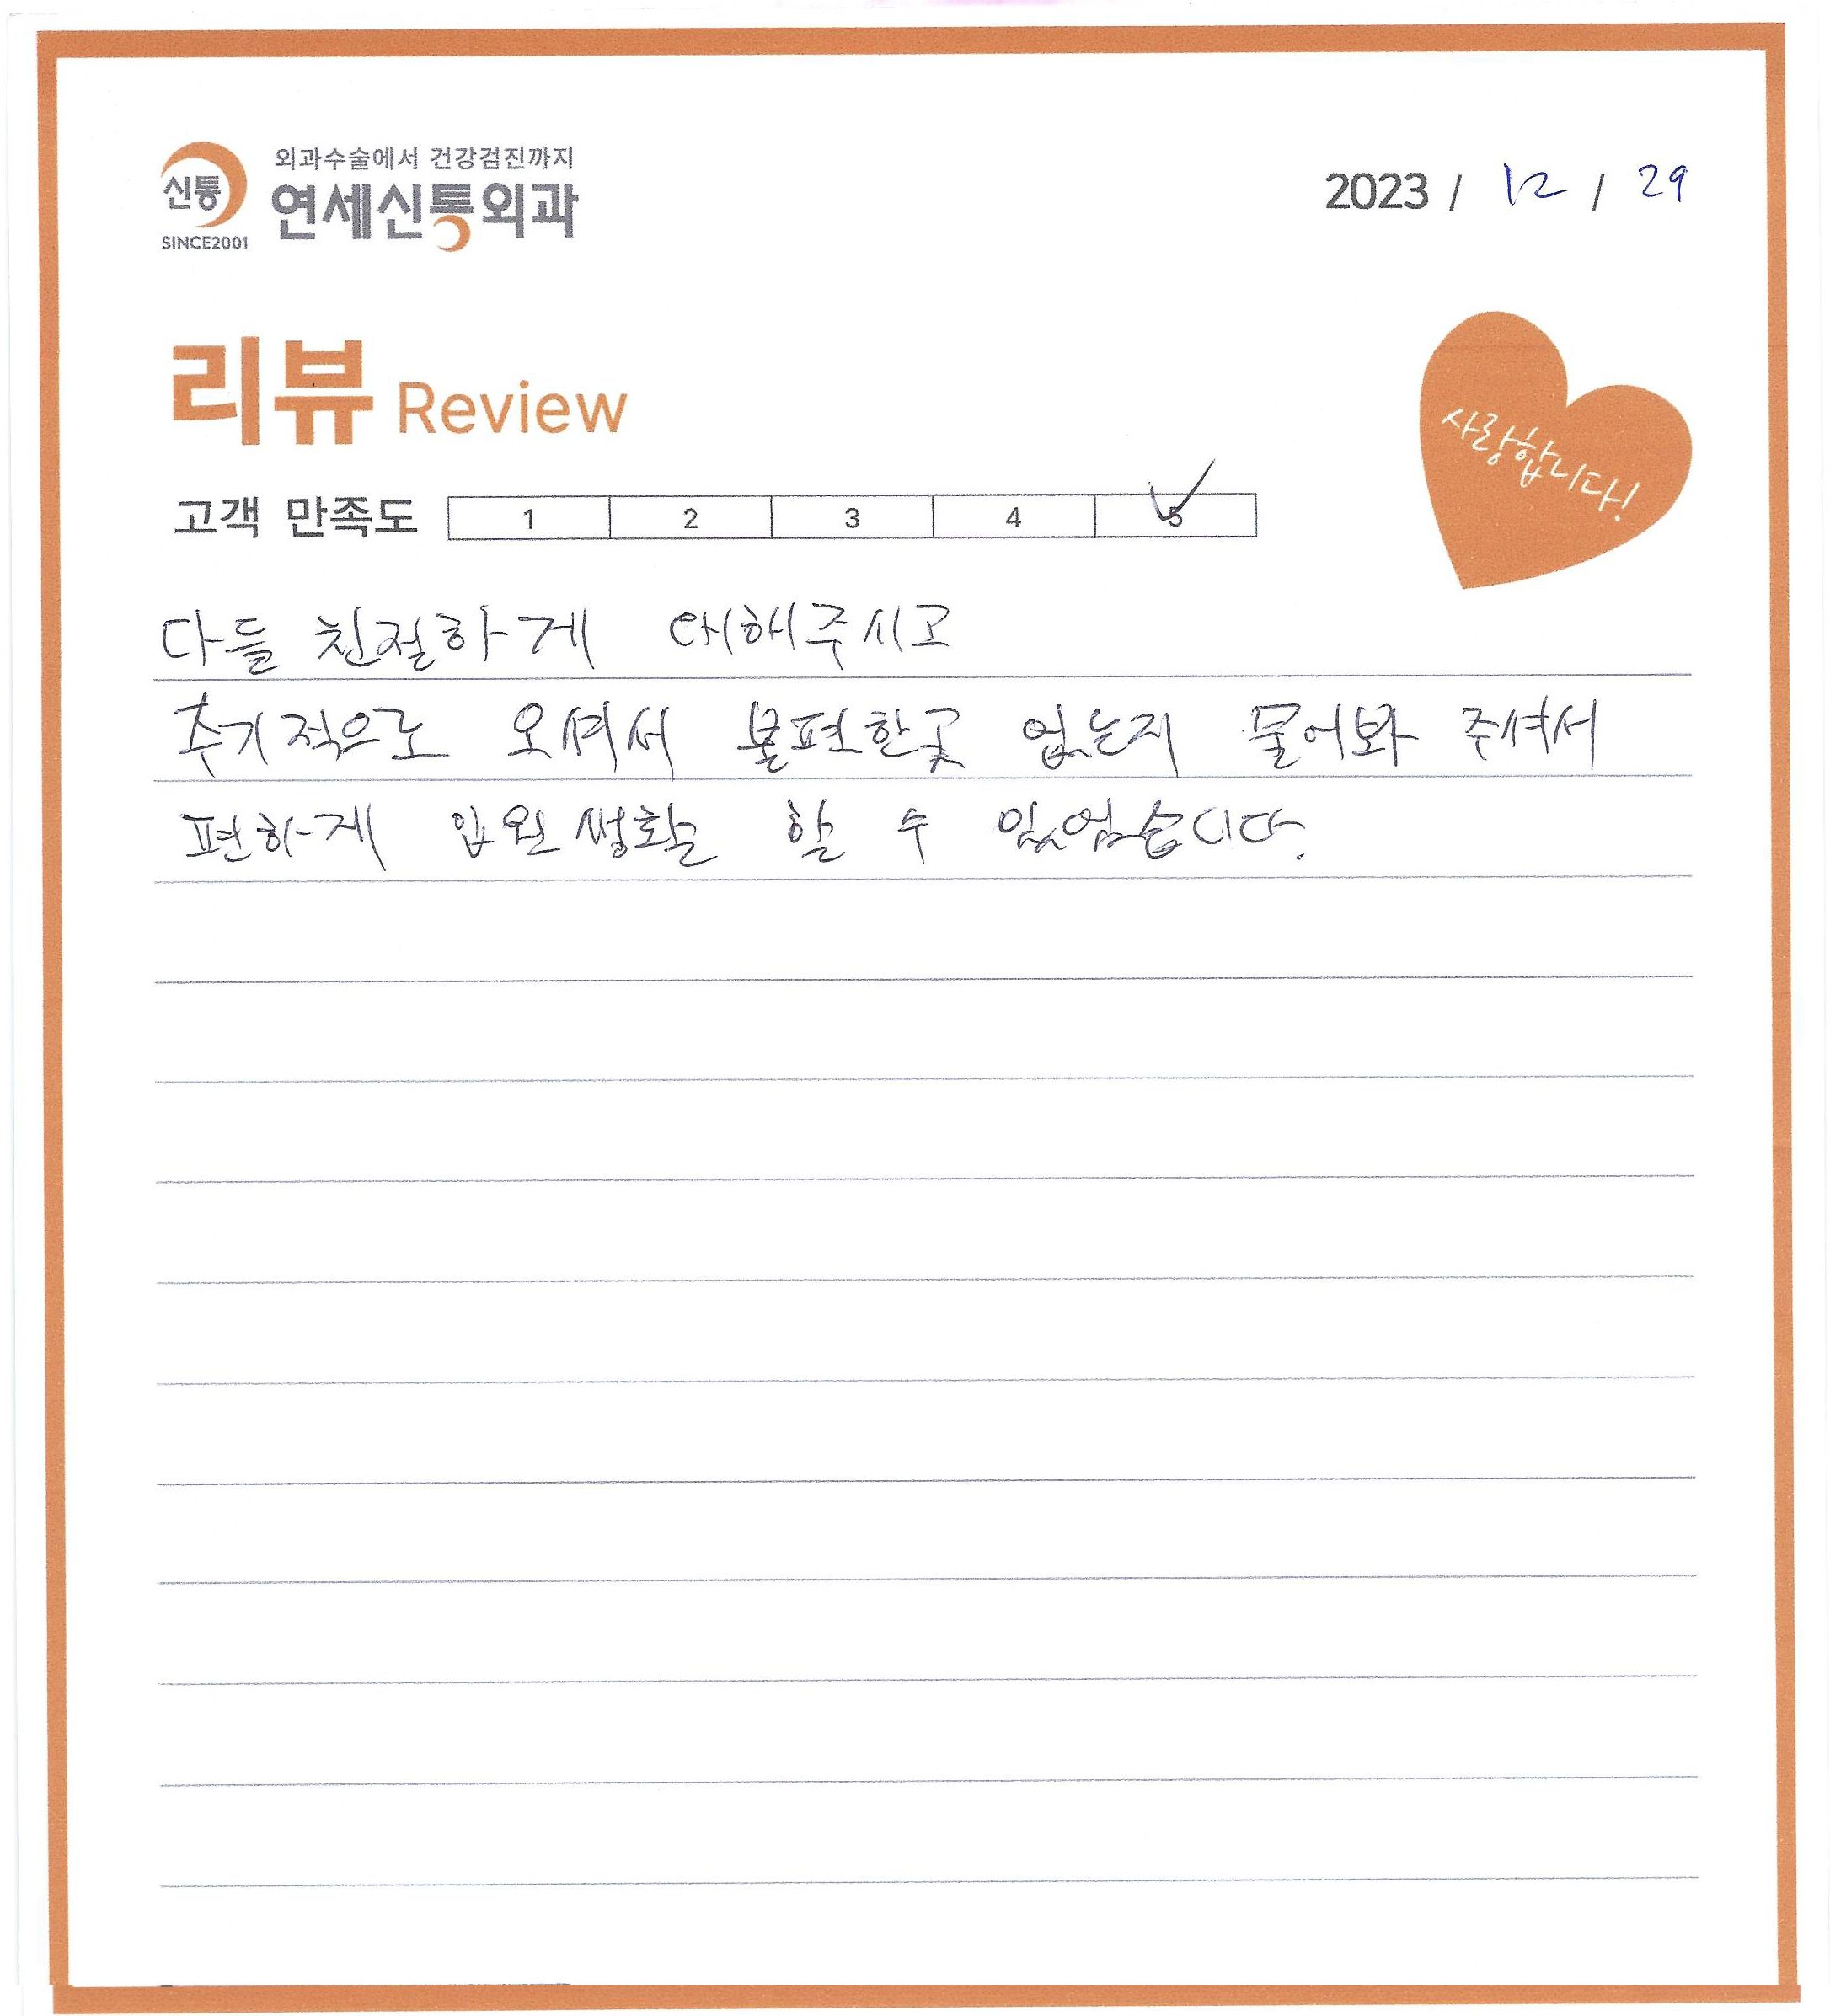 외과수술에서 건강검진까지
신통
연세신통외과
SINCE2001
2023 / 12 / 29
리뷰 Review
사랑합니다!
고객 만족도 1 2 3 4 5
다들 친절하게 대해주시고
주기적으로 오셔서 불편한곳 없는지 물어봐 주셔서
편하게 입원생활 할 수 있었습니다.